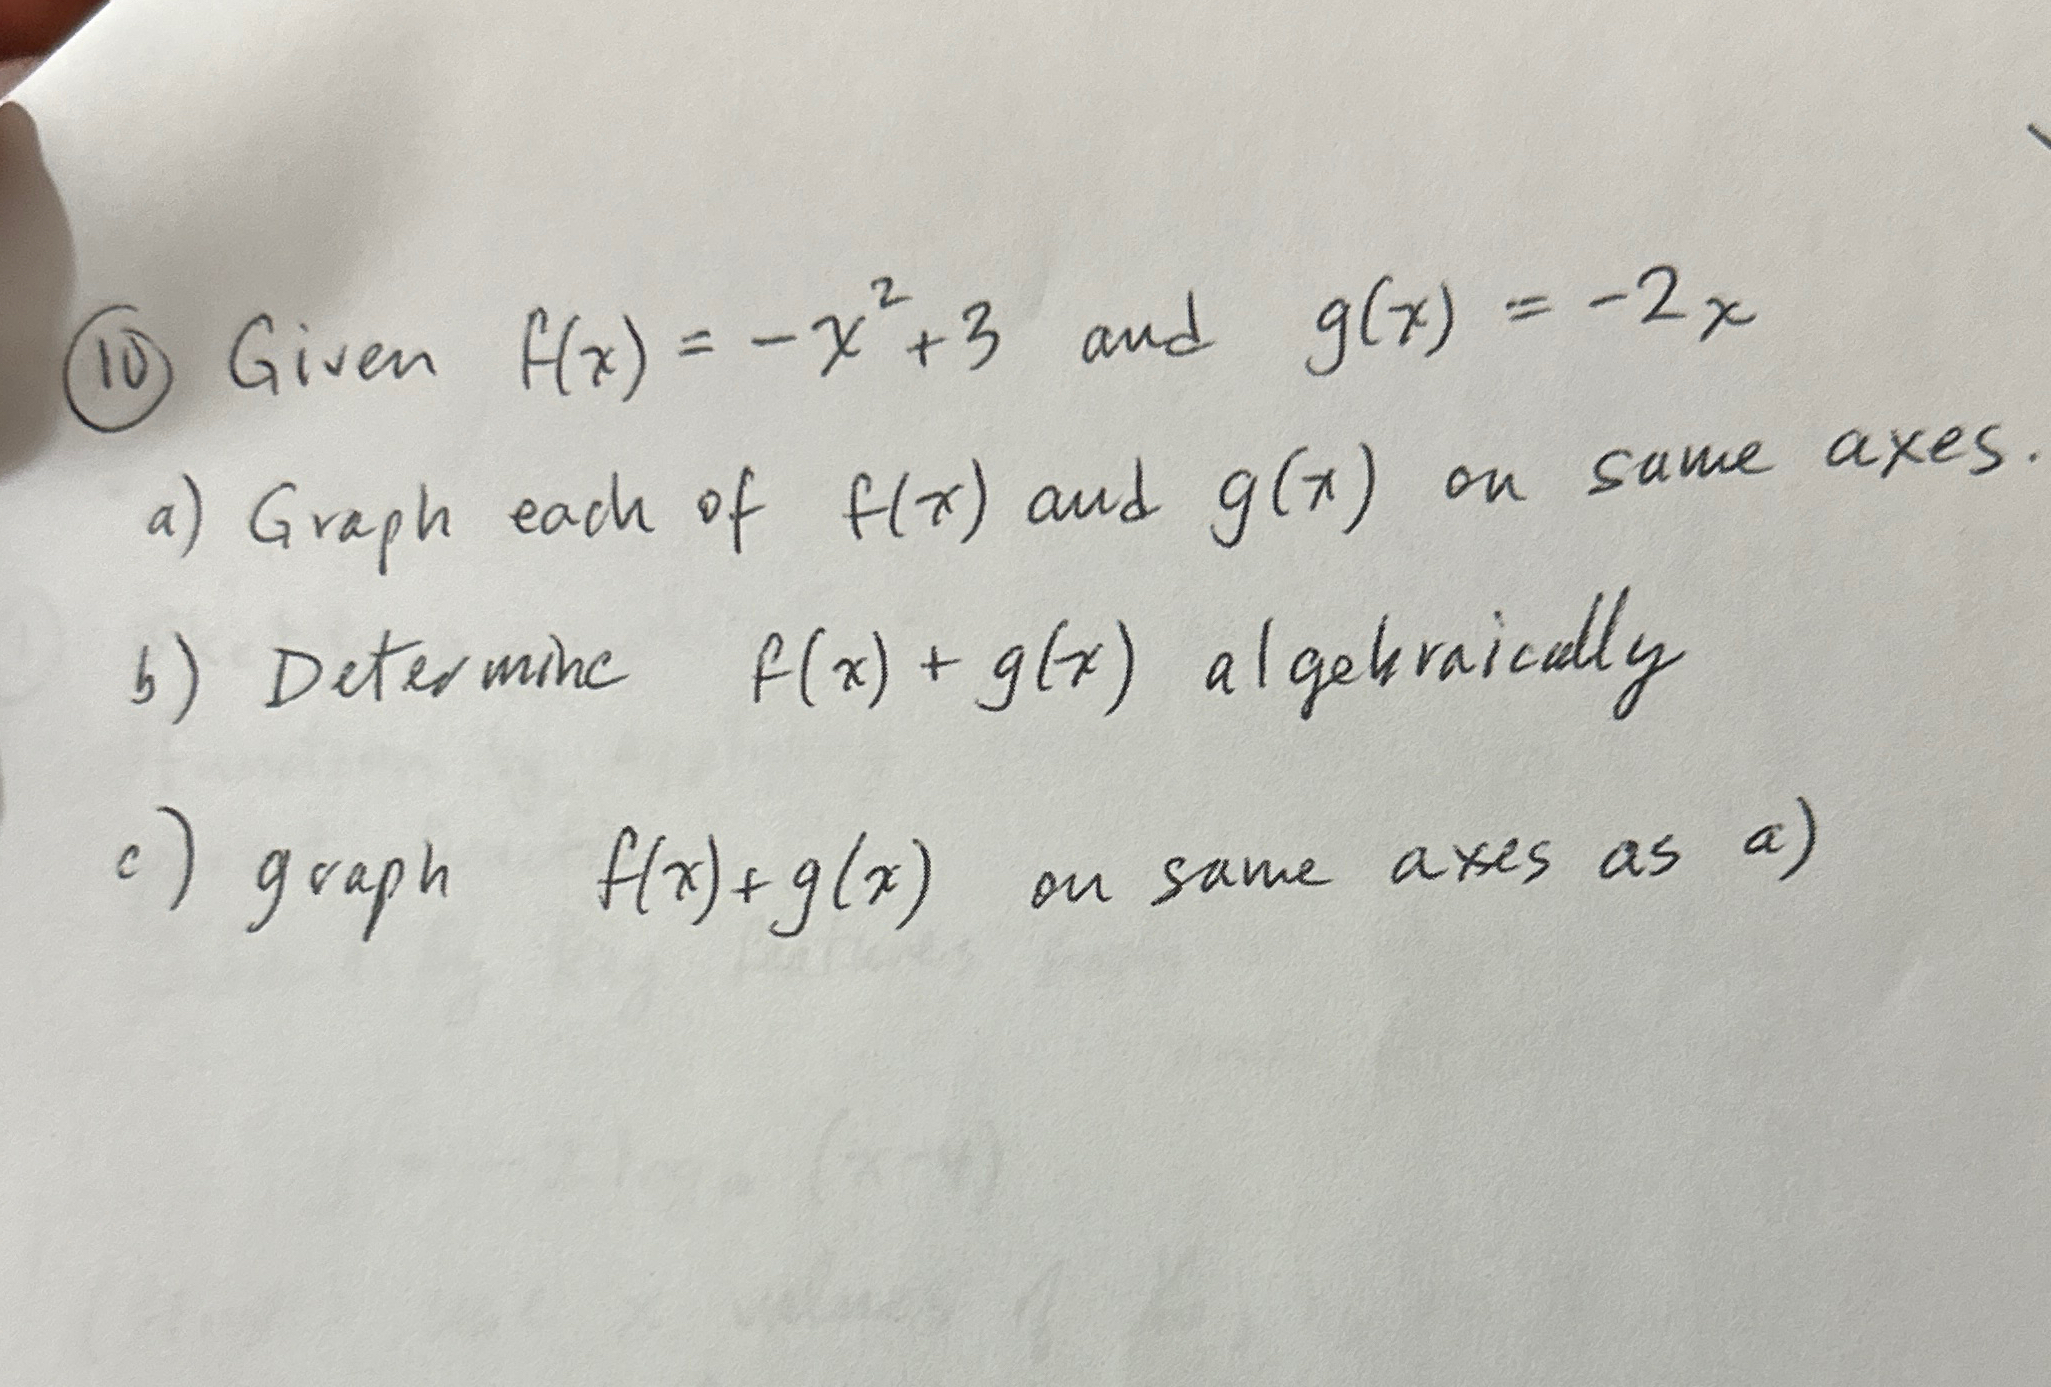 ⑩ Given f(x) = -x²+3 and g(x) = -2x
a) Graph each of f(x) and g(x) on same axes.
b) Determine f(x) + g(x) algebraically
c) graph f(x)+g(x) on same axes as a)